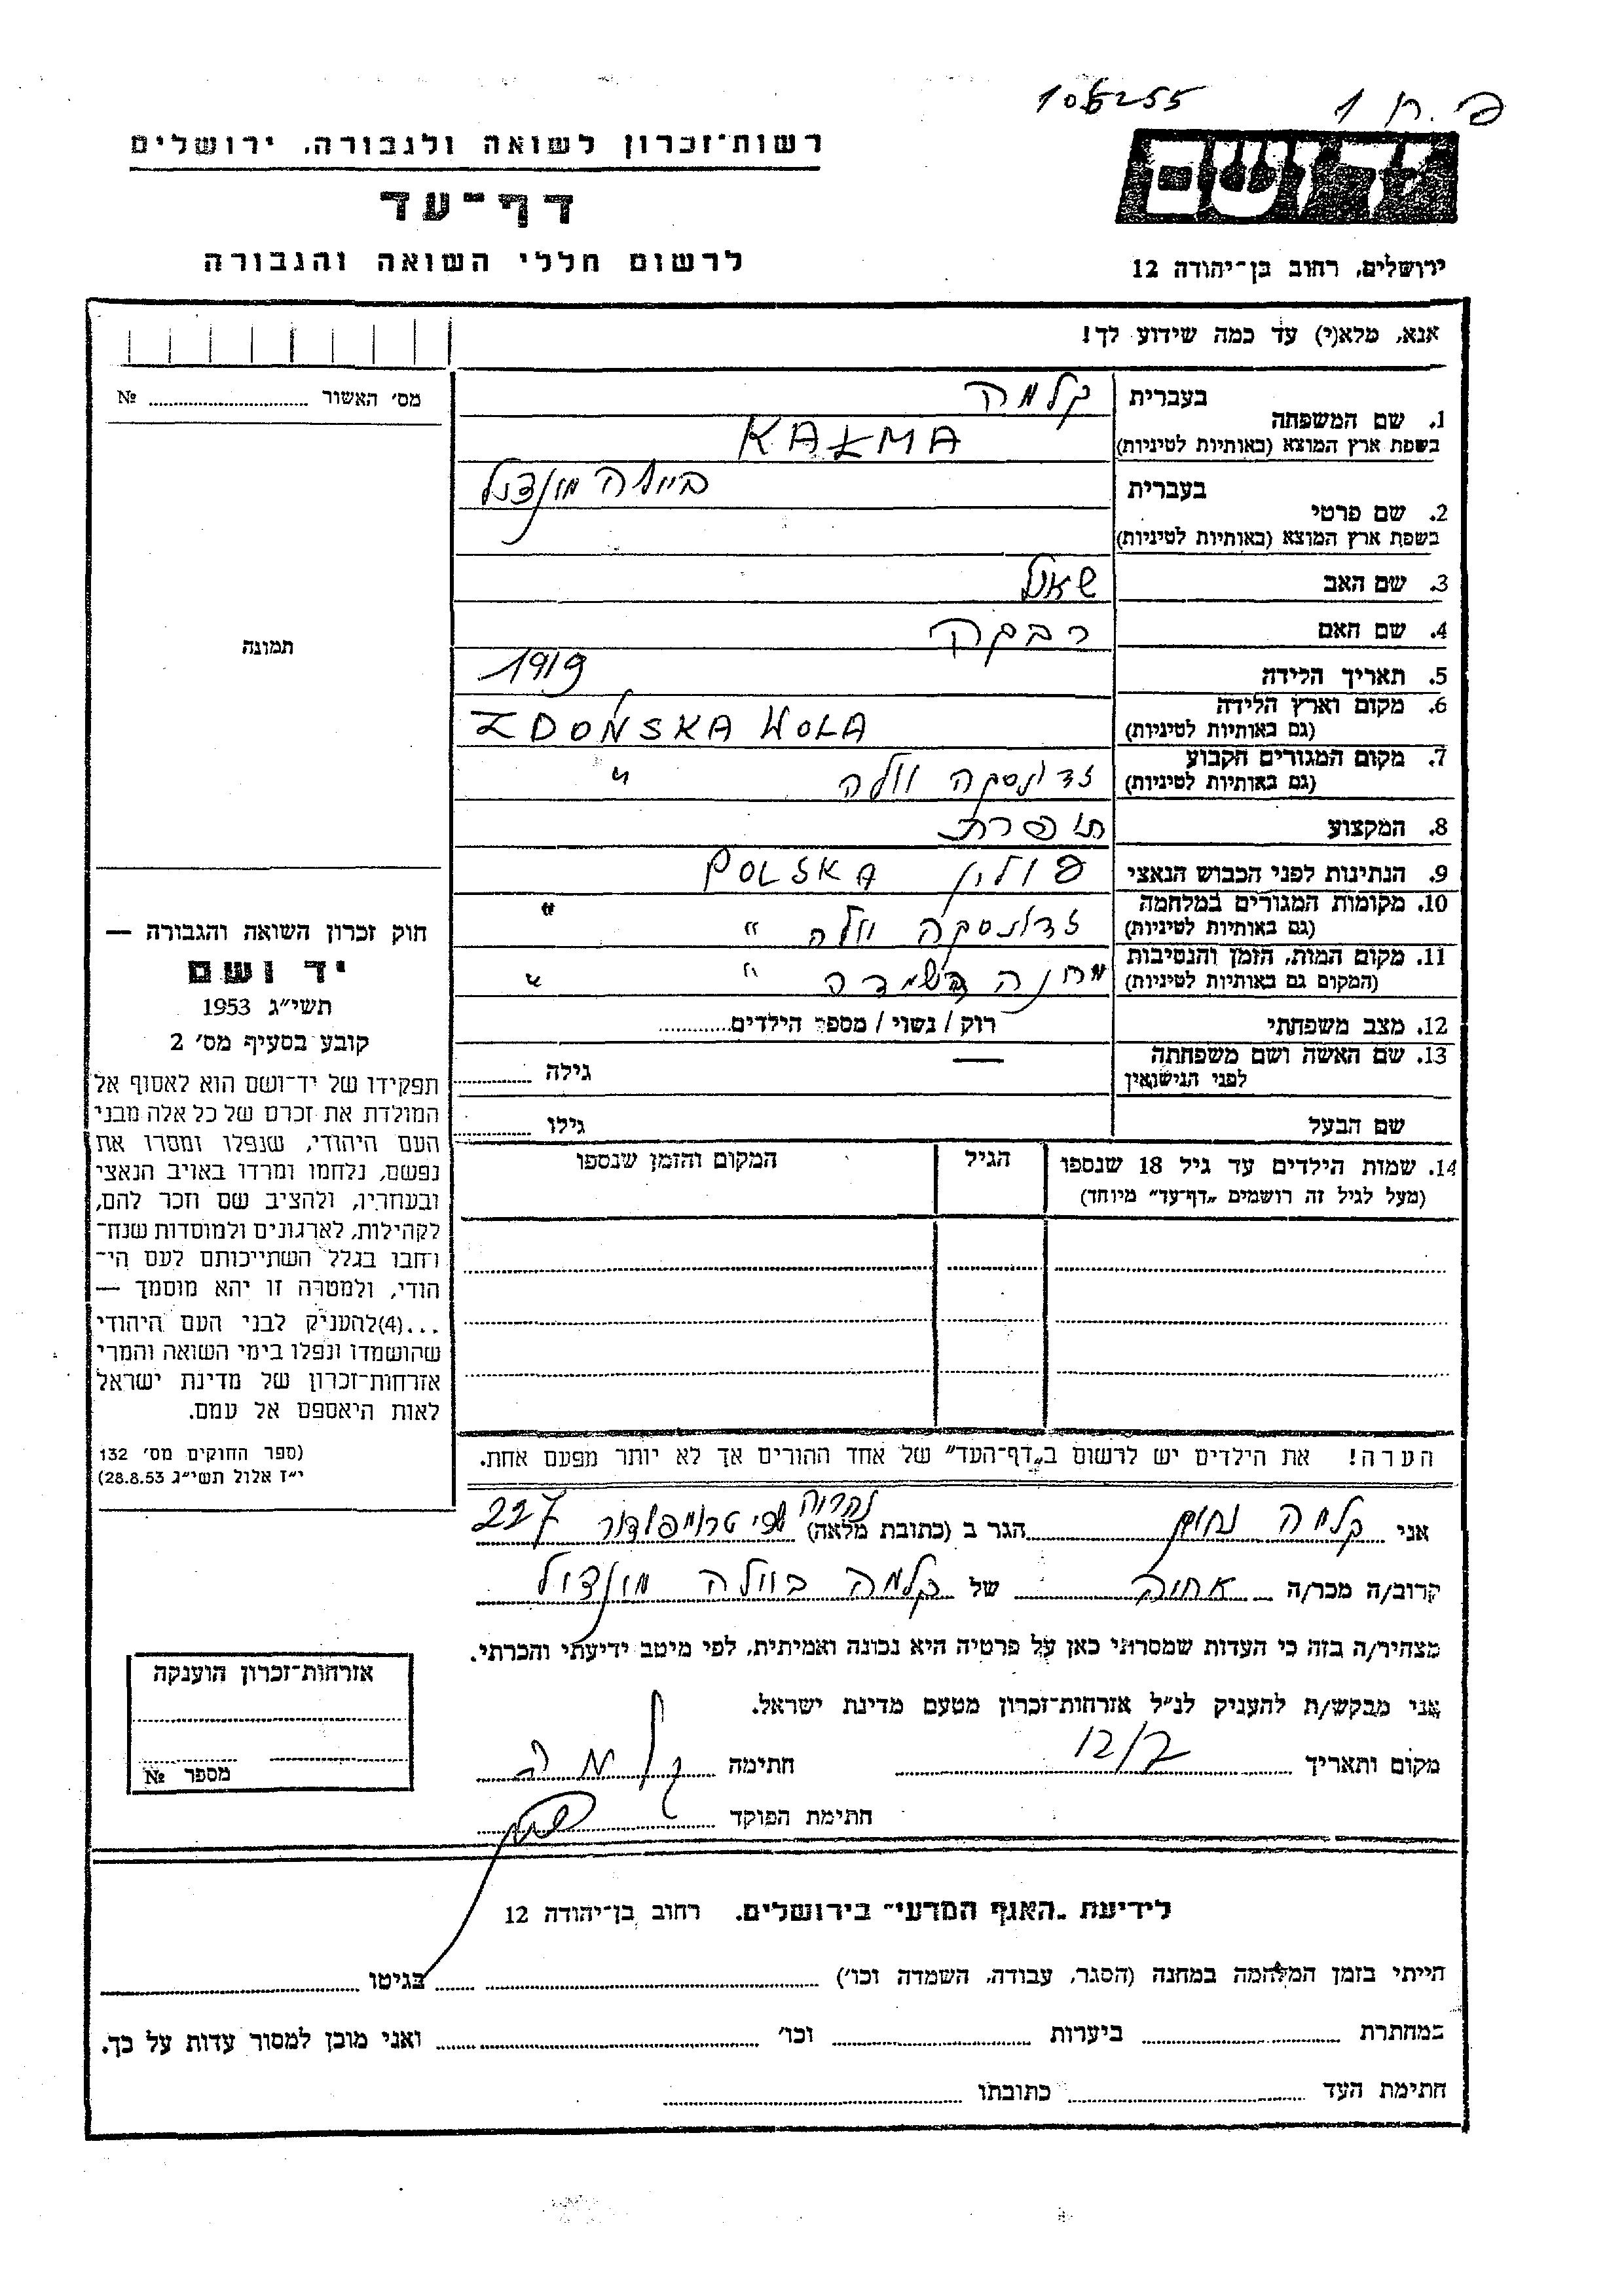 106255
פ.ח 1
יד ושם
ירושלים, רחוב בן־יהודה 12
רשות־זכרון לשואה ולגבורה, ירושלים
דף־עד
לרשום חללי השואה והגבורה
אנא, מלא(י) עד כמה שידוע לך!
1. שם המשפחה בעברית קלמה
בשפת ארץ המוצא (באותיות לטיניות) KAŁMA
2. שם פרטי בעברית ביילה
בשפת ארץ המוצא (באותיות לטיניות)
3. שם האב שאול
4. שם האם רבקה
5. תאריך הלידה 1919
6. מקום וארץ הלידה ZDOŃSKA WOLA
(גם באותיות לטיניות)
7. מקום המגורים הקבוע זדונסקה וולה "
(גם באותיות לטיניות)
8. המקצוע תופרת
9. הנתינות לפני הכבוש הנאצי פולין POLSKA
10. מקומות המגורים במלחמה זדונסקה וולה " "
(גם באותיות לטיניות)
11. מקום המות, הזמן והנסיבות מחנה השמדה " "
(המקום גם באותיות לטיניות)
12. מצב משפחתי רוק / נשוי / מספר הילדים
13. שם האשה ושם משפחתה — גילה
לפני הנישואין
שם הבעל גילו
14. שמות הילדים עד גיל 18 שנספו הגיל המקום והזמן שנספו
(מעל לגיל זה רושמים „דף־עד" מיוחד)
הערה! את הילדים יש לרשום ב„דף־העד" של אחד ההורים אך לא יותר מפעם אחת.
מס׳ האשור №
תמונה
חוק זכרון השואה והגבורה —
יד ושם
תשי״ג 1953
קובע בסעיף מס׳ 2
תפקידו של יד־ושם הוא לאסוף אל
המולדת את זכרם של כל אלה מבני
העם היהודי, שנפלו ומסרו את
נפשם, נלחמו ומרדו באויב הנאצי
ובעוזריו, ולהציב שם וזכר להם,
לקהילות, לארגונים ולמוסדות שנח־
רחבו בגלל השתייכותם לעם הי־
הודי, ולמטרה זו יהא מוסמך —
...(4)להעניק לבני העם היהודי
שהושמדו ונפלו בימי השואה והמרי
אזרחות־זכרון של מדינת ישראל
לאות היאספם אל עמם.
(ספר החוקים מס׳ 132
י״ז אלול תשי״ג 28.8.53)
אני קלמה נחום הגר ב (כתובת מלאה) נהריה טרומפלדור 227
קרוב/ה מכר/ה אחיה של קלמה
מצהיר/ה בזה כי העדות שמסרתי כאן על פרטיה היא נכונה ואמיתית, לפי מיטב ידיעתי והכרתי.
אני מבקש/ת להעניק לנ״ל אזרחות־זכרון מטעם מדינת ישראל.
מקום ותאריך 12/2 חתימה קלמה
חתימת הפוקד
אזרחות־זכרון הוענקה
מספר №
לידיעת „האגף המדעי" בירושלים, רחוב בן־יהודה 12
הייתי בזמן המלחמה במחנה (הסגר, עבודה, השמדה וכו׳) בגיטו
במחתרת ביערות וכו׳ ואני מוכן למסור עדות על כך.
חתימת העד כתובתו